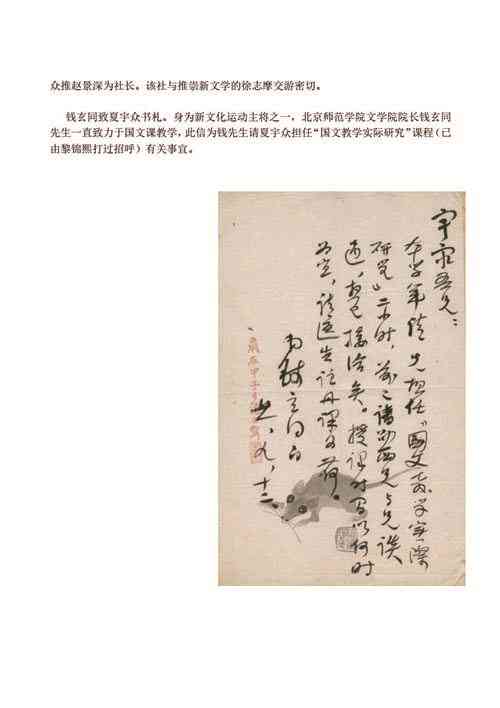 众推赵景深为社长。该社与推崇新文学的徐志摩交游密切。
钱玄同致夏宇众书札。身为新文化运动主将之一，北京师范学院文学院院长钱玄同
先生一直致力于国文课教学，此信为钱先生请夏宇众担任“国文教学实际研究”课程（已
由黎锦熙打过招呼）有关事宜。
宇众吾兄：
本学年请兄担任“国文教学实际
研究”二小时，前已请劭西兄与兄谈
过，想已接洽矣。授课时间以何时
为宜，请迳告注册课为荷。
弟钱玄同白
廿，九，十二、
岁在甲子